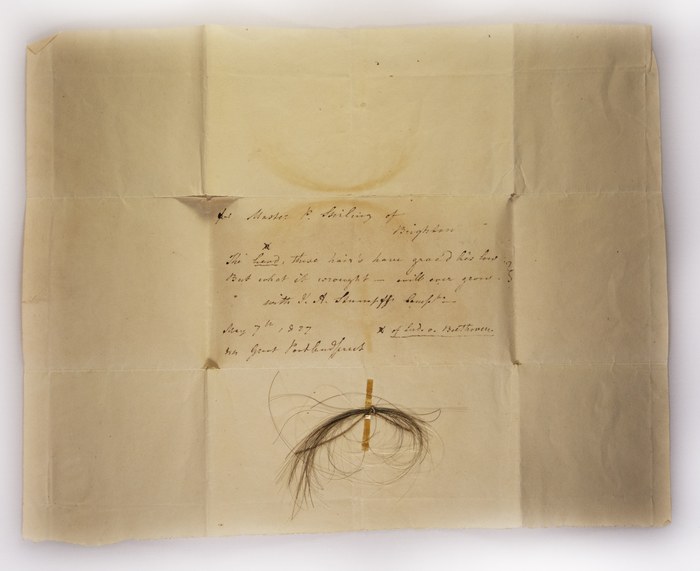 for Master P. Stirling of
Brighton
x
The head, these hair's have grac'd lies low
But what it wrought — will ever grow.
with J. A. Stumpff's Compts.
May 7th 1827
x of Lud. v. Beethoven.
Great Portland Street